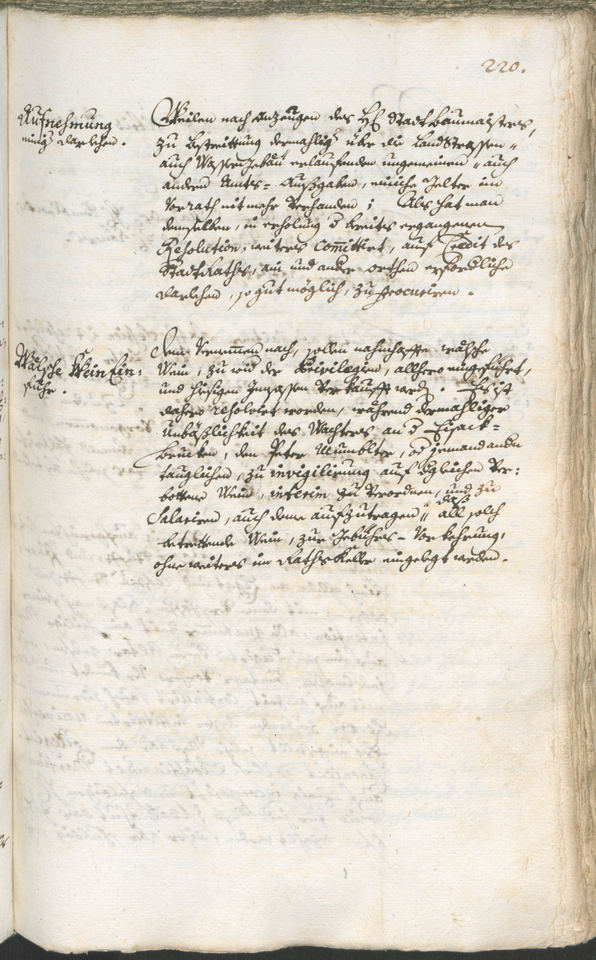 220.
Aufnehmung
einig darlehen.
Weilen nach anzeugen des H: Stadtbaumaisters,
zu bestreittung dermahlig über die Landstrassen
auch Wassergebäu erlaufenden ungemeinen auch
anderen Ambts- Außgaben, einiche gelter im
Vorrath nit mehr verhanden; Als hat man
demselben, in erholung d bereits ergangenen
Resolution, weiters committirt, auf Credit des
Stadt Raths, ain und ander orthen erforderliche
darlehen, so gut möglich, zu procuriren.
Wälsche Wein Ein:
fuhr.
Dem Vernemmen nach, sollen nahmhaffte wälsche
Wein, zu wider der Privilegien, allhero eingeführt,
und hiesigen Innsassen verkaufft werden. Es ist
dahero resolvirt worden, während dermahliger
Unbäßlichkeit des Wachters an d Eysack-
brucken, dem Peter, od jemand andern
tauglichen, zu invigilirung auf dergleichen ver:
bottene Wein, interim zu verordnen, und zu
Salariren, auch deme aufzutragen, daß all solch
betrettende Wein, zur gebührs- Vorkehrung,
ohne weiters im Rathskeller eingelegt werden.